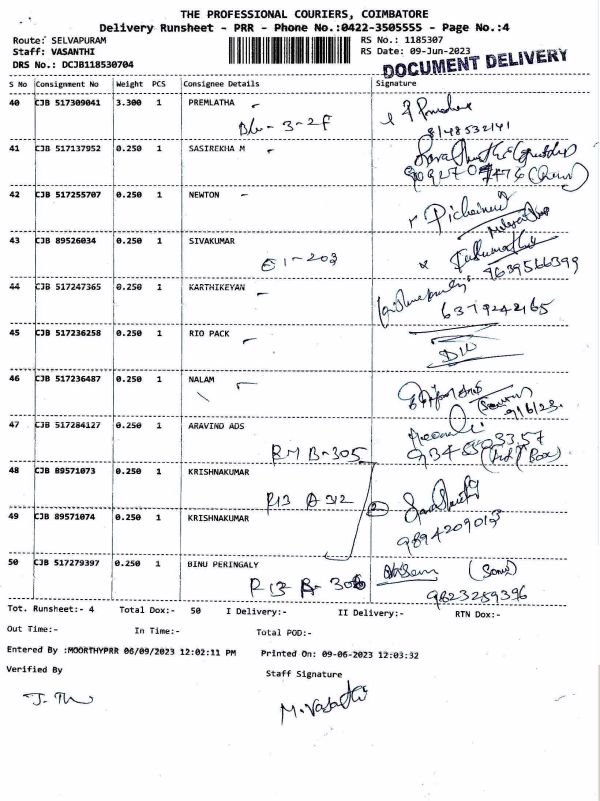 THE PROFESSIONAL COURIERS, COIMBATORE
Delivery Runsheet - PRR - Phone No.:0422-3505555 - Page No.:4
Route: SELVAPURAM RS No.: 1185307
Staff: VASANTHI RS Date: 09-Jun-2023
DRS No.: DCJB118530704 DOCUMENT DELIVERY
S No Consignment No Weight PCS Consignee Details Signature
40 CJB 517309041 3.300 1 PREMLATHA
8148532141
41 CJB 517137952 0.250 1 SASIREKHA M
42 CJB 517255707 0.250 1 NEWTON
43 CJB 89526034 0.250 1 SIVAKUMAR
E1-203 9639566399
44 CJB 517247365 0.250 1 KARTHIKEYAN
6379242165
45 CJB 517236258 0.250 1 RIO PACK
46 CJB 517236487 0.250 1 NALAM
9/6/23
47 CJB 517284127 0.250 1 ARAVIND ADS
RM B-305
48 CJB 89571073 0.250 1 KRISHNAKUMAR
R13 A 312
49 CJB 89571074 0.250 1 KRISHNAKUMAR
9894209013
50 CJB 517279397 0.250 1 BINU PERINGALY
9823289396
Tot. Runsheet:- 4 Total Dox:- 50 I Delivery:- II Delivery:- RTN Dox:-
Out Time:- In Time:- Total POD:-
Entered By :MOORTHYPRR 06/09/2023 12:02:11 PM Printed On: 09-06-2023 12:03:32
Verified By Staff Signature
M. Vasanthi